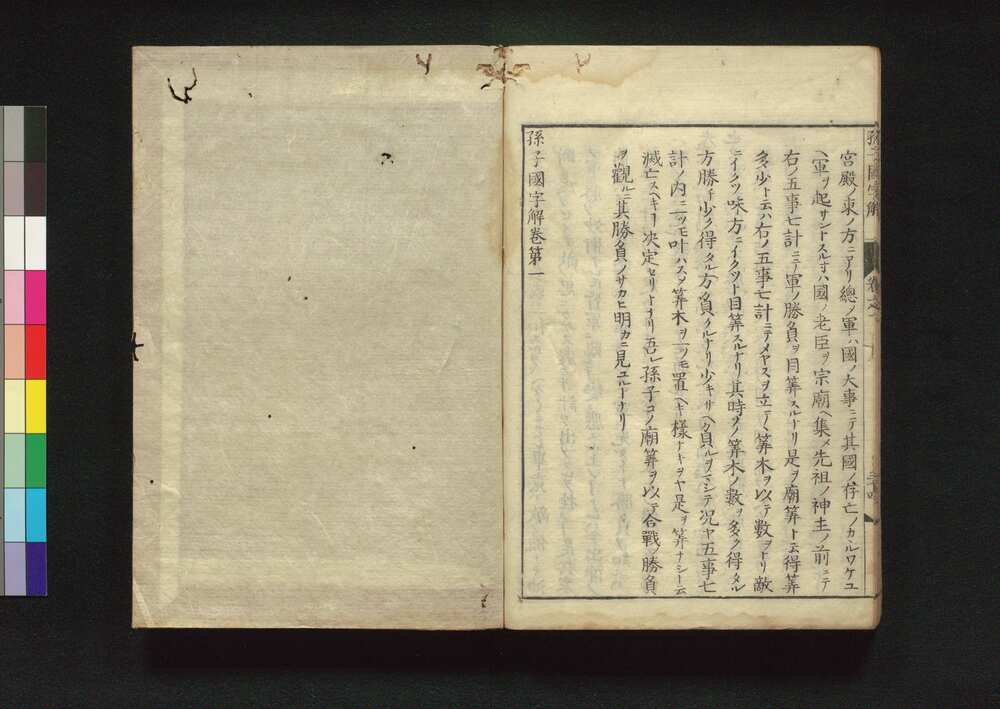 孫子國字解 卷之一
宮殿ノ東ノ方ニアリ總ノ軍ハ國ノ大事ニテ其國ノ存亡ノカルワケユ
ヘ軍ヲ起サントスル寸ハ國ノ老臣ヲ宗廟ヘ集メ先祖ノ神主ノ前ニテ
右ノ五事七計ニテ軍ノ勝負ヲ目算スルナリ是ヲ廟算ト云得算
多少ト云ハ右ノ五事七計ニテメヤスヲ立テ算木ヲ以テ數ヲトリ敵
ニイクツ味方ニイクツト目算スルナリ其時ソノ算木ノ數ヲ多ク得タル
方勝チ少ク得タル方負クルナリ少キサヘ負ルヲマシテ況ヤ五事七
計ノ内一ツモ叶ハスメ算木ヲ一ツモ置ヘキ樣ナキヲヤ是ヲ算ナシト云
滅亡スヘキニ决定セリトナリ吾レ孫子コノ廟算ヲ以テ合戰ノ勝負
ヲ觀ルニ其勝負ノサカヒ明カニ見ユルトナリ
孫子國字解卷第一